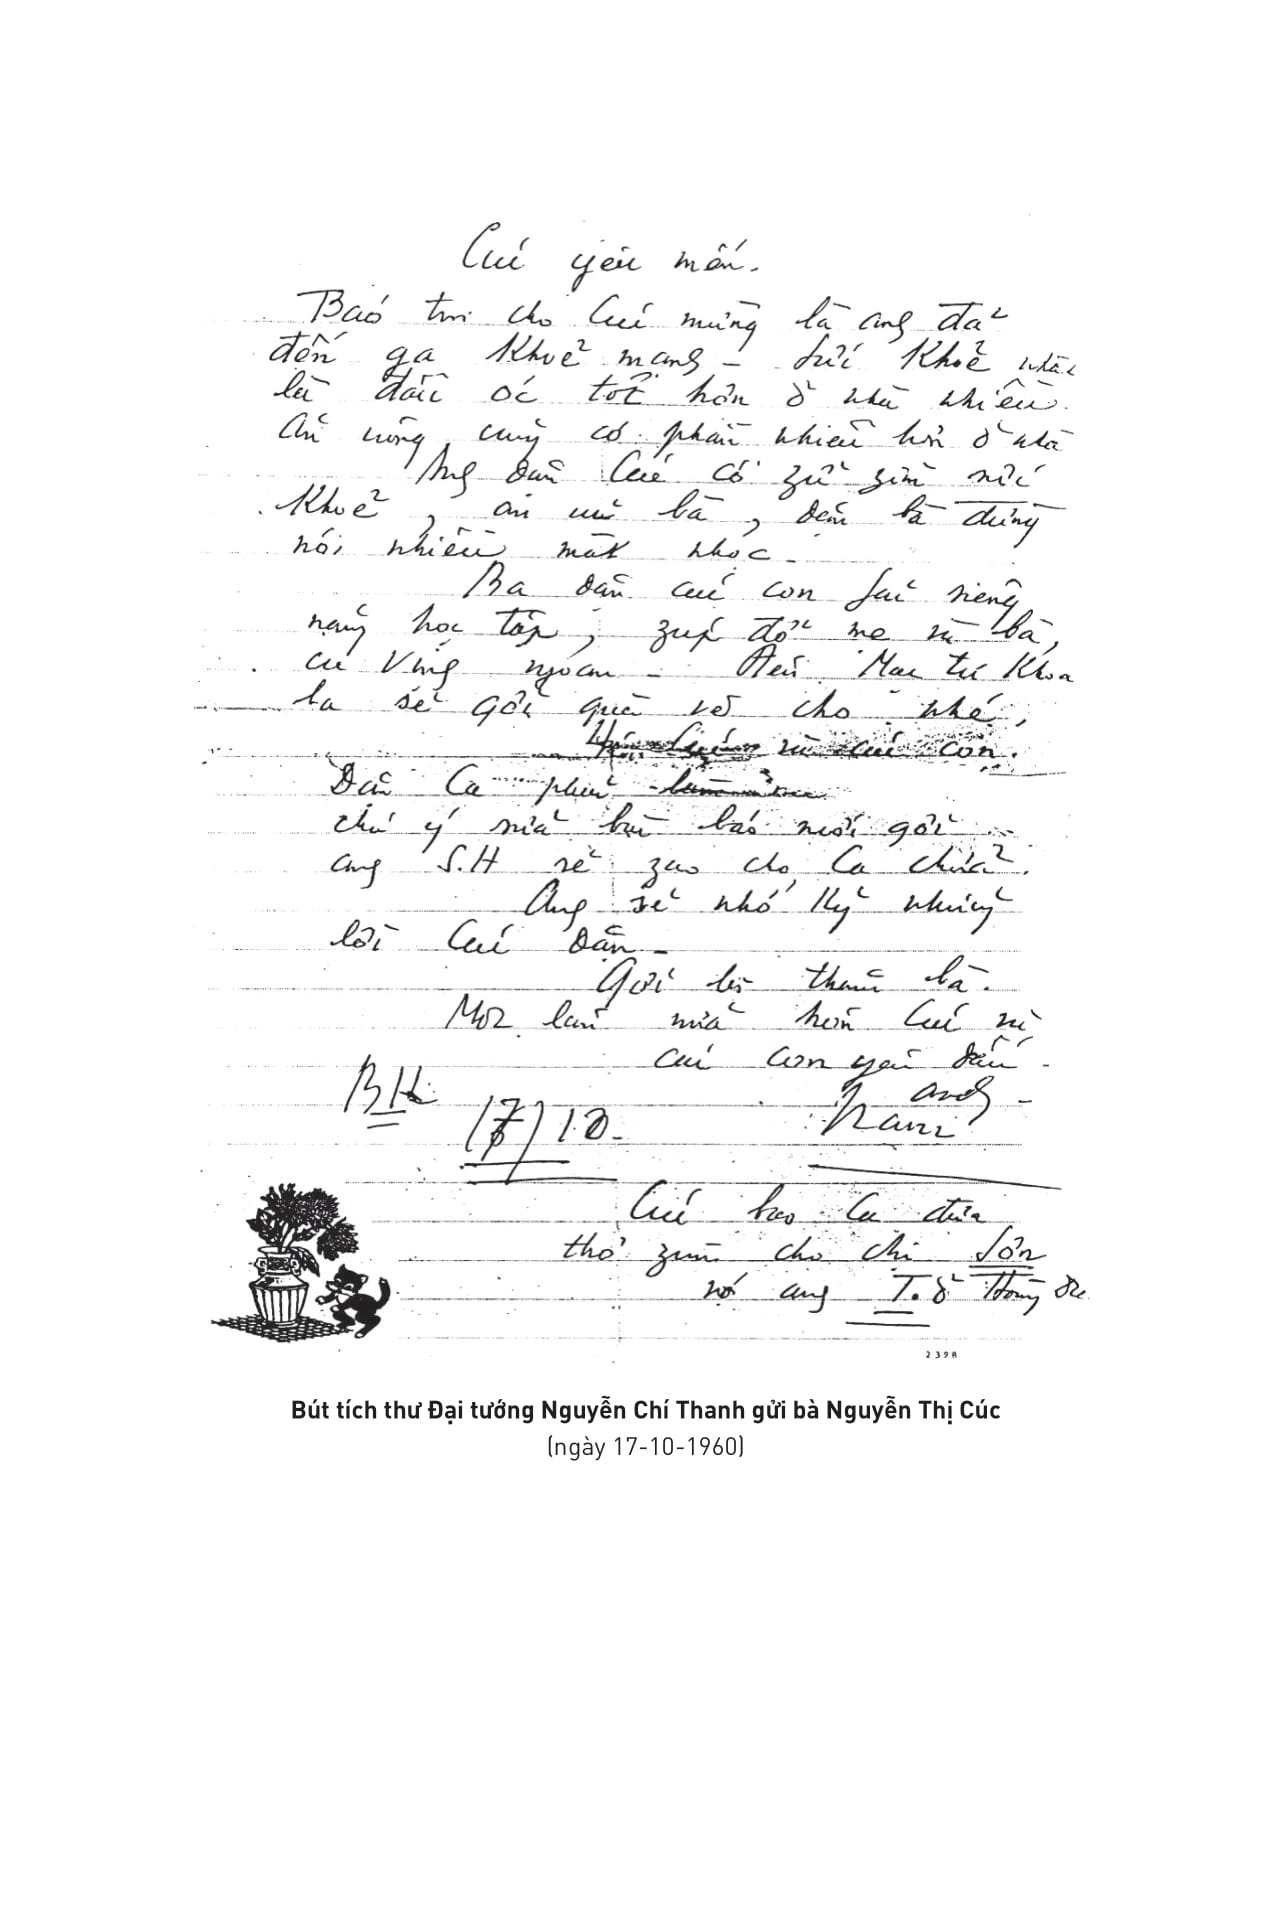 Cúc yêu mến.
Báo tin cho Cúc mừng là anh đã
đến ga khoẻ mạnh – Sức khoẻ nhất
là đầu óc tốt hơn ở nhà nhiều.
Ăn uống cũng có phần nhiều hơn ở nhà
Anh dặn Cúc cố zữ zìn sức
khoẻ, an ủi bà, đến bà đừng
nói nhiều mất nhọc –
Ba dặn các con fải siêng
năng học tập, zúp đỡ mẹ và bà,
cu Vịnh ngoan – Đến Mạc tư Khoa
ba sẽ gởi quà về cho nhé,
và các con.
Dặn Ca phải
chú ý sửa bài báo mới gởi
anh S.H sẽ zao cho Ca chữa.
Anh sẽ nhớ kỹ những
lời Cúc dặn –
Gởi lời thăm bà.
Một lần nữa hôn Cúc và
các con yêu dấu –
anh –
BK
17/10.
Cúc bảo Ca đưa
thơ zùm cho chị Sơn
vợ anh T. ở
2398
Bút tích thư Đại tướng Nguyễn Chí Thanh gửi bà Nguyễn Thị Cúc
(ngày 17-10-1960)